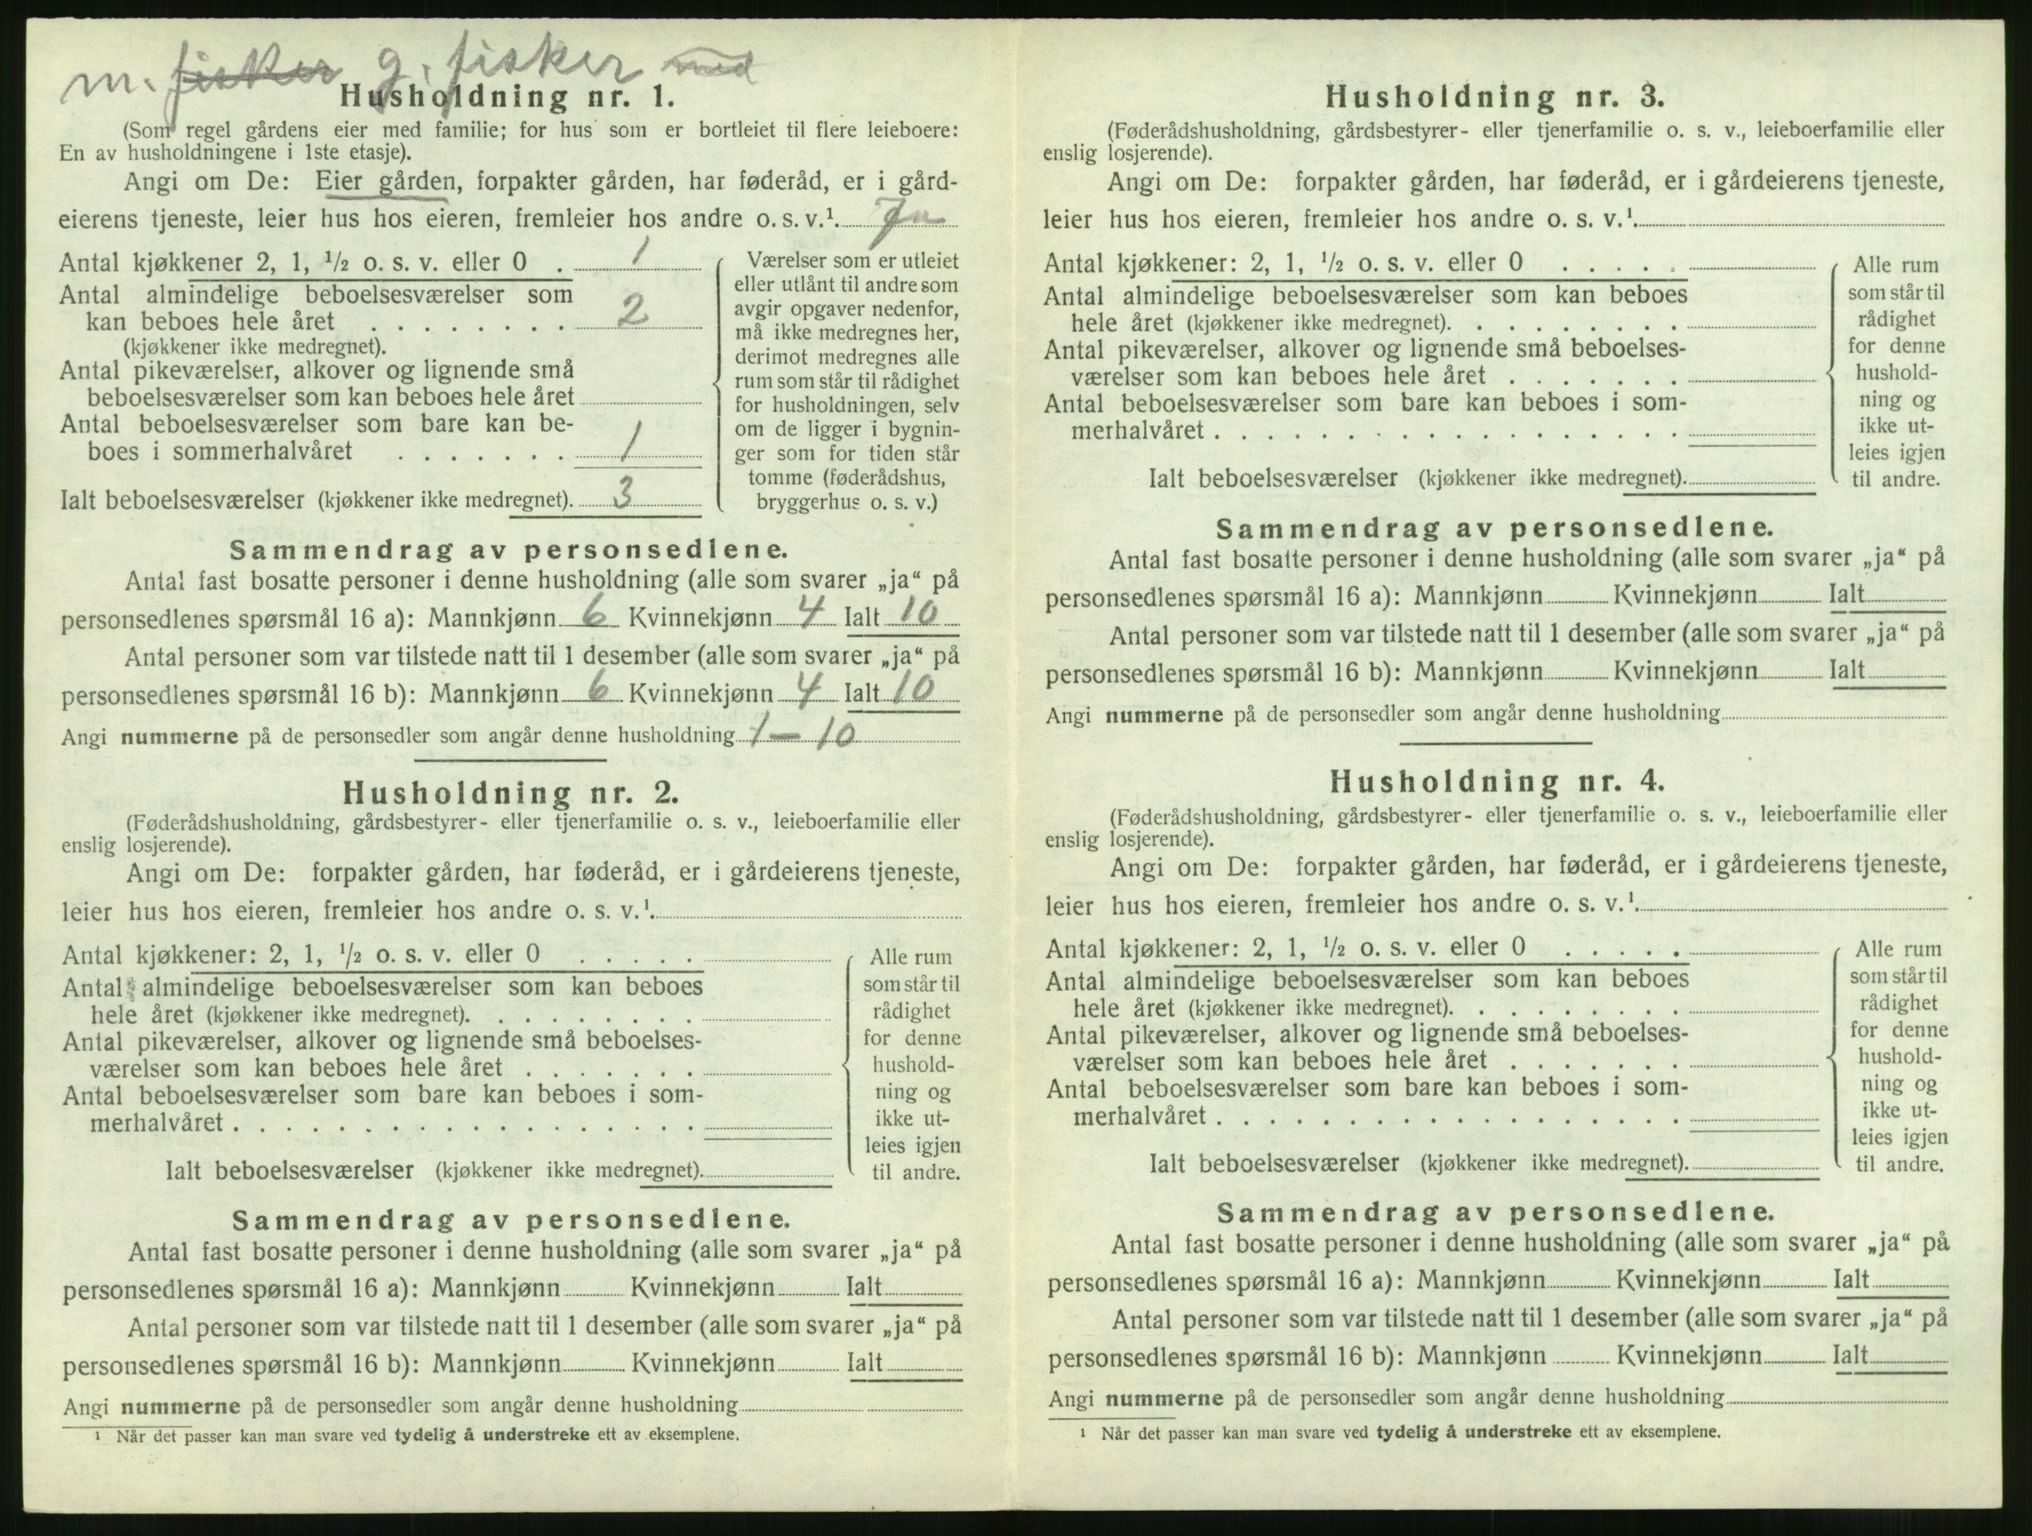 m. fisker g. fisker med
Husholdning nr. 1.
(Som regel gårdens eier med familie; for hus som er bortleiet til flere leieboere:
En av husholdningene i 1ste etasje).
Angi om De: Eier gården, forpakter gården, har føderåd, er i gård-
eierens tjeneste, leier hus hos eieren, fremleier hos andre o. s. v.¹. Ja
Antal kjøkkener 2, 1, ½ o. s. v. eller 0 . 1
Antal almindelige beboelsesværelser som
kan beboes hele året . . . . . . . . 2
(kjøkkener ikke medregnet).
Antal pikeværelser, alkover og lignende små
beboelsesværelser som kan beboes hele året
Antal beboelsesværelser som bare kan be-
boes i sommerhalvåret . . . . . . . 1
Ialt beboelsesværelser (kjøkkener ikke medregnet). 3
Værelser som er utleiet
eller utlånt til andre som
avgir opgaver nedenfor,
må ikke medregnes her,
derimot medregnes alle
rum som står til rådighet
for husholdningen, selv
om de ligger i bygnin-
ger som for tiden står
tomme (føderådshus,
bryggerhus o. s. v.)
Sammendrag av personsedlene.
Antal fast bosatte personer i denne husholdning (alle som svarer „ja“ på
personsedlenes spørsmål 16 a): Mannkjønn 6 Kvinnekjønn 4 Ialt 10
Antal personer som var tilstede natt til 1 desember (alle som svarer „ja“ på
personsedlenes spørsmål 16 b): Mannkjønn 6 Kvinnekjønn 4 Ialt 10
Angi nummerne på de personsedler som angår denne husholdning 1 – 10
Husholdning nr. 2.
(Føderådshusholdning, gårdsbestyrer- eller tjenerfamilie o. s. v., leieboerfamilie eller
enslig losjerende).
Angi om De: forpakter gården, har føderåd, er i gårdeierens tjeneste,
leier hus hos eieren, fremleier hos andre o. s. v.¹.
Antal kjøkkener: 2, 1, ½ o. s. v. eller 0 . . . . .
Antal almindelige beboelsesværelser som kan beboes
hele året (kjøkkener ikke medregnet). . . . . . . . .
Antal pikeværelser, alkover og lignende små beboelses-
værelser som kan beboes hele året . . . . . . .
Antal beboelsesværelser som bare kan beboes i som-
merhalvåret . . . . . . . . . . . . . . . . . .
Ialt beboelsesværelser (kjøkkener ikke medregnet).
Alle rum
som står til
rådighet
for denne
hushold-
ning og
ikke ut-
leies igjen
til andre.
Sammendrag av personsedlene.
Antal fast bosatte personer i denne husholdning (alle som svarer „ja“ på
personsedlenes spørsmål 16 a): Mannkjønn Kvinnekjønn Ialt
Antal personer som var tilstede natt til 1 desember (alle som svarer „ja“ på
personsedlenes spørsmål 16 b): Mannkjønn Kvinnekjønn Ialt
Angi nummerne på de personsedler som angår denne husholdning
¹ Når det passer kan man svare ved tydelig å understreke ett av eksemplene.
Husholdning nr. 3.
(Føderådshusholdning, gårdsbestyrer- eller tjenerfamilie o. s. v., leieboerfamilie eller
enslig losjerende).
Angi om De: forpakter gården, har føderåd, er i gårdeierens tjeneste,
leier hus hos eieren, fremleier hos andre o. s. v.¹.
Antal kjøkkener: 2, 1, ½ o. s. v. eller 0 . . . . .
Antal almindelige beboelsesværelser som kan beboes
hele året (kjøkkener ikke medregnet). . . . . . . . .
Antal pikeværelser, alkover og lignende små beboelses-
værelser som kan beboes hele året . . . . . . .
Antal beboelsesværelser som bare kan beboes i som-
merhalvåret . . . . . . . . . . . . . . . . . .
Ialt beboelsesværelser (kjøkkener ikke medregnet).
Alle rum
som står til
rådighet
for denne
hushold-
ning og
ikke ut-
leies igjen
til andre.
Sammendrag av personsedlene.
Antal fast bosatte personer i denne husholdning (alle som svarer „ja“ på
personsedlenes spørsmål 16 a): Mannkjønn Kvinnekjønn Ialt
Antal personer som var tilstede natt til 1 desember (alle som svarer „ja“ på
personsedlenes spørsmål 16 b): Mannkjønn Kvinnekjønn Ialt
Angi nummerne på de personsedler som angår denne husholdning
Husholdning nr. 4.
(Føderådshusholdning, gårdsbestyrer- eller tjenerfamilie o. s. v., leieboerfamilie eller
enslig losjerende).
Angi om De: forpakter gården, har føderåd, er i gårdeierens tjeneste,
leier hus hos eieren, fremleier hos andre o. s. v.¹.
Antal kjøkkener: 2, 1, ½ o. s. v. eller 0 . . . . .
Antal almindelige beboelsesværelser som kan beboes
hele året (kjøkkener ikke medregnet). . . . . . . . .
Antal pikeværelser, alkover og lignende små beboelses-
værelser som kan beboes hele året . . . . . . .
Antal beboelsesværelser som bare kan beboes i som-
merhalvåret . . . . . . . . . . . . . . . . . .
Ialt beboelsesværelser (kjøkkener ikke medregnet).
Alle rum
som står til
rådighet
for denne
hushold-
ning og
ikke ut-
leies igjen
til andre.
Sammendrag av personsedlene.
Antal fast bosatte personer i denne husholdning (alle som svarer „ja“ på
personsedlenes spørsmål 16 a): Mannkjønn Kvinnekjønn Ialt
Antal personer som var tilstede natt til 1 desember (alle som svarer „ja“ på
personsedlenes spørsmål 16 b): Mannkjønn Kvinnekjønn Ialt
Angi nummerne på de personsedler som angår denne husholdning
¹ Når det passer kan man svare ved tydelig å understreke ett av eksemplene.